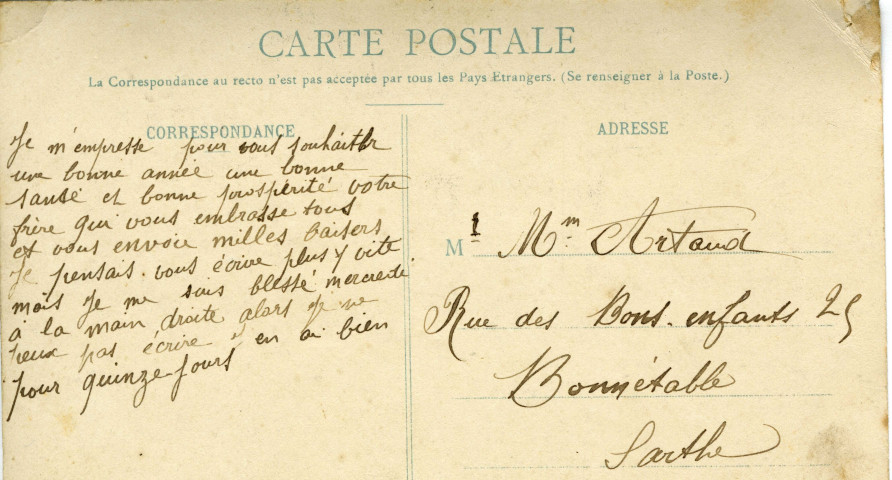 CARTE POSTALE
La Correspondance au recto n'est pas acceptée par tous les Pays Etrangers. (Se renseigner à la Poste.)
CORRESPONDANCE
Je m'empresse pour vous souhaiter
une bonne année une bonne
santé et bonne prospérité votre
frère qui vous embrasse tous
et vous envoie milles baisers
Je pensais vous écrire plus vite
mais Je me suis blessé mercredi
à la main droite alors Je ne
peux pas écrire J'en ai bien
pour quinze jours
ADRESSE
M r Mm Artaud
Rue des Bons-enfants 25
Bonnétable
Sarthe